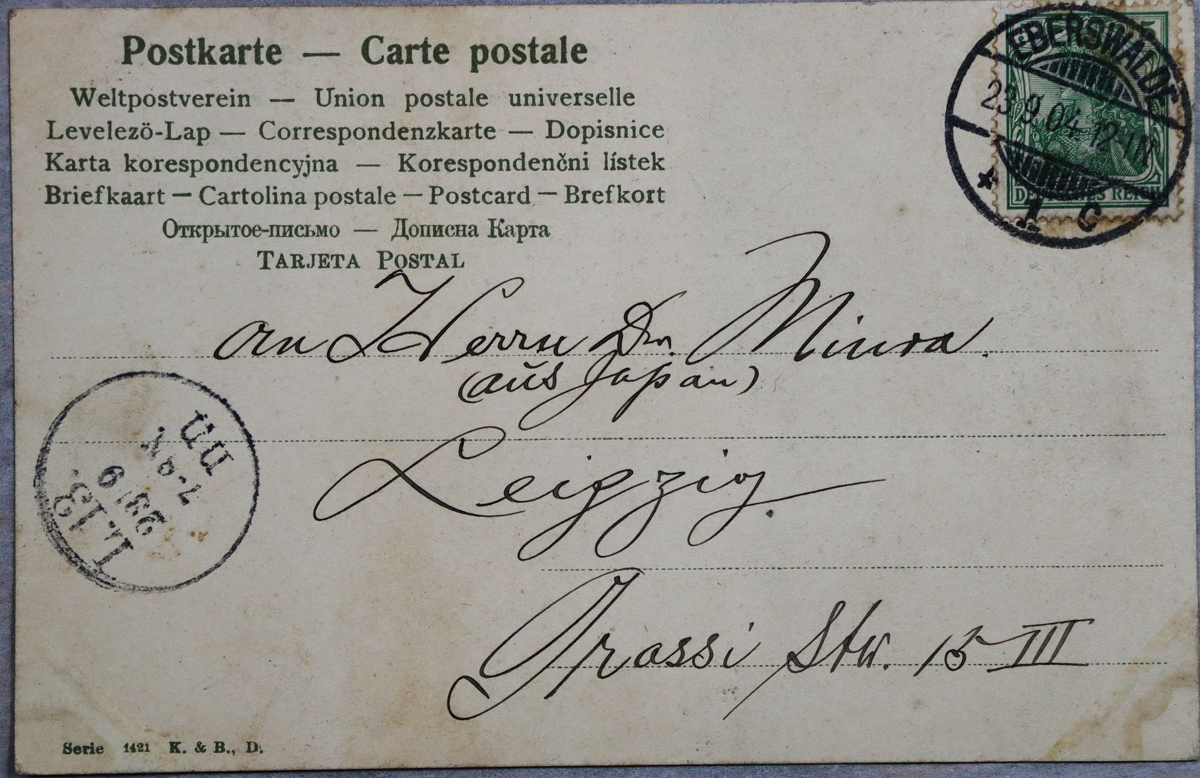 Postkarte — Carte postale
Weltpostverein — Union postale universelle
Levelezö-Lap — Correspondenzkarte — Dopisnice
Karta korespondencyjna — Korespondenčni lístek
Briefkaart — Cartolina postale — Postcard — Brefkort
Открытое-письмо — Дописна Карта
TARJETA POSTAL
EBERSWALDE
23.9.04.12-1N.
* 1 C
DEUTSCHES REICH
an Herrn Dr. Miura.
(aus Japan)
Leipzig.
Grassi Str. 15 III
L.13.
23 9
7-8
Serie 1421 K. & B., D.